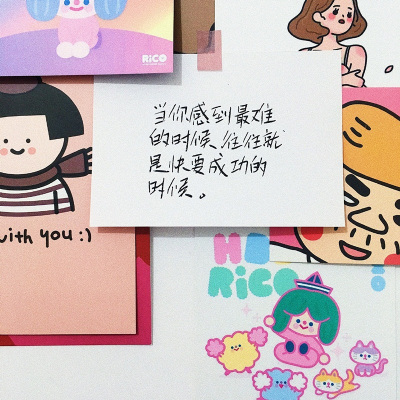 RiCO
当你感到最难
的时候,往往就
是快要成功的
时候。
with you :)
RiCO